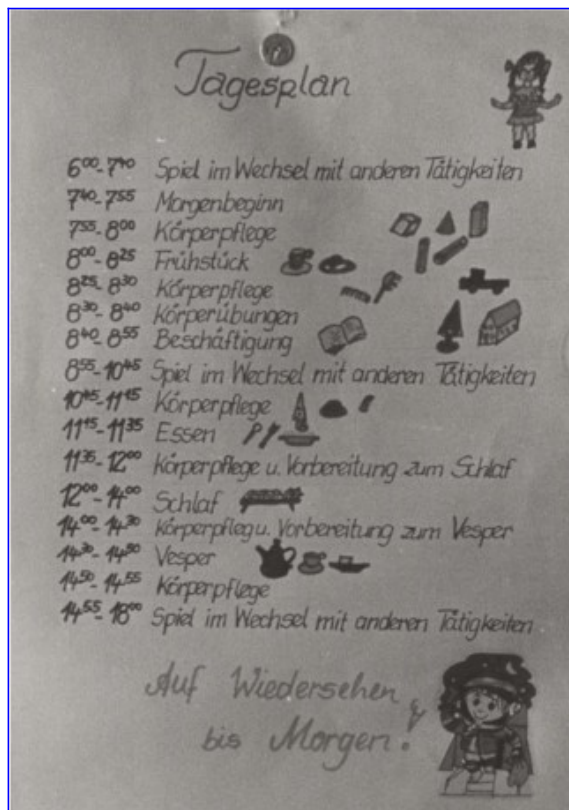 Tagesplan
6⁰⁰-7⁴⁰ Spiel im Wechsel mit anderen Tätigkeiten
7⁴⁰-7⁵⁵ Morgenbeginn
7⁵⁵-8⁰⁰ Körperpflege
8⁰⁰-8²⁵ Frühstück
8²⁵-8³⁰ Körperpflege
8³⁰-8⁴⁰ Körperübungen
8⁴⁰-8⁵⁵ Beschäftigung
8⁵⁵-10⁴⁵ Spiel im Wechsel mit anderen Tätigkeiten
10⁴⁵-11¹⁵ Körperpflege
11¹⁵-11³⁵ Essen
11³⁵-12⁰⁰ Körperpflege u. Vorbereitung zum Schlaf
12⁰⁰-14⁰⁰ Schlaf
14⁰⁰-14³⁰ Körperpfleg u. Vorbereitung zum Vesper
14³⁰-14⁵⁰ Vesper
14⁵⁰-14⁵⁵ Körperpflege
14⁵⁵-18⁰⁰ Spiel im Wechsel mit anderen Tätigkeiten
Auf Wiedersehen
bis Morgen!